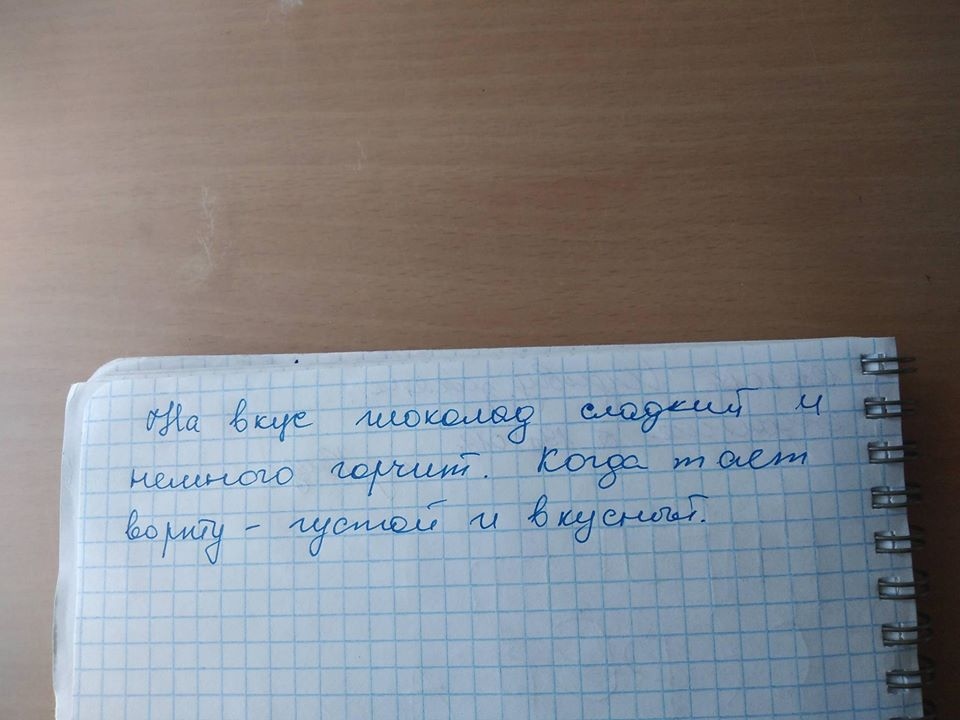 На вкус шоколад сладкий и
немного горчит. Когда тает
ворту - густой и вкусный.